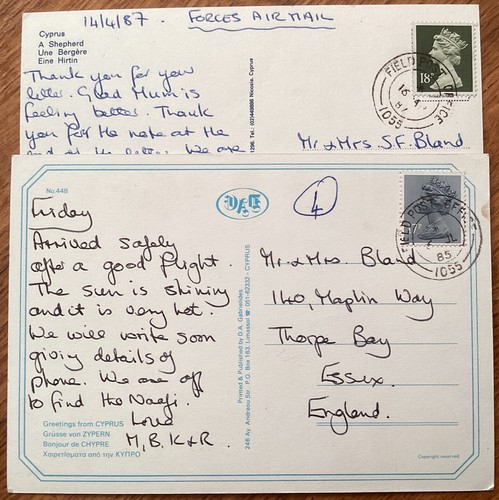 14/4/87. FORCES AIR MAIL
Cyprus
A Shepherd
Une Bergère
Eine Hirtin
Thank you for your
letter. Glad Mum is
feeling better. Thank
you for the note at the
end of the letter. We are
18P
FIELD POST OFFICE
87
1055
Mr & Mrs S.F. Bland
No.448
4
Friday
Arrived safely
after a good flight.
The sun is shining
and it is very hot.
We will write soon
giving details of
phone. We are off
to find the Naafi.
Love
M, B, K & R.
Greetings from CYPRUS
Grüsse von ZYPERN
Bonjour de CHYPRE
Χαιρετίσματα από την ΚΥΠΡΟ
Printed & Published by D.A. Gabrielides
246 Ay. Andreou Str. P.O. Box 163, Limassol ☎: 051-62332 - CYPRUS
FIELD POST OFFICE
85
1055
Mr & Mrs. Bland
140, Maplin Way
Thorpe Bay
Essex.
England.
Copyright reserved